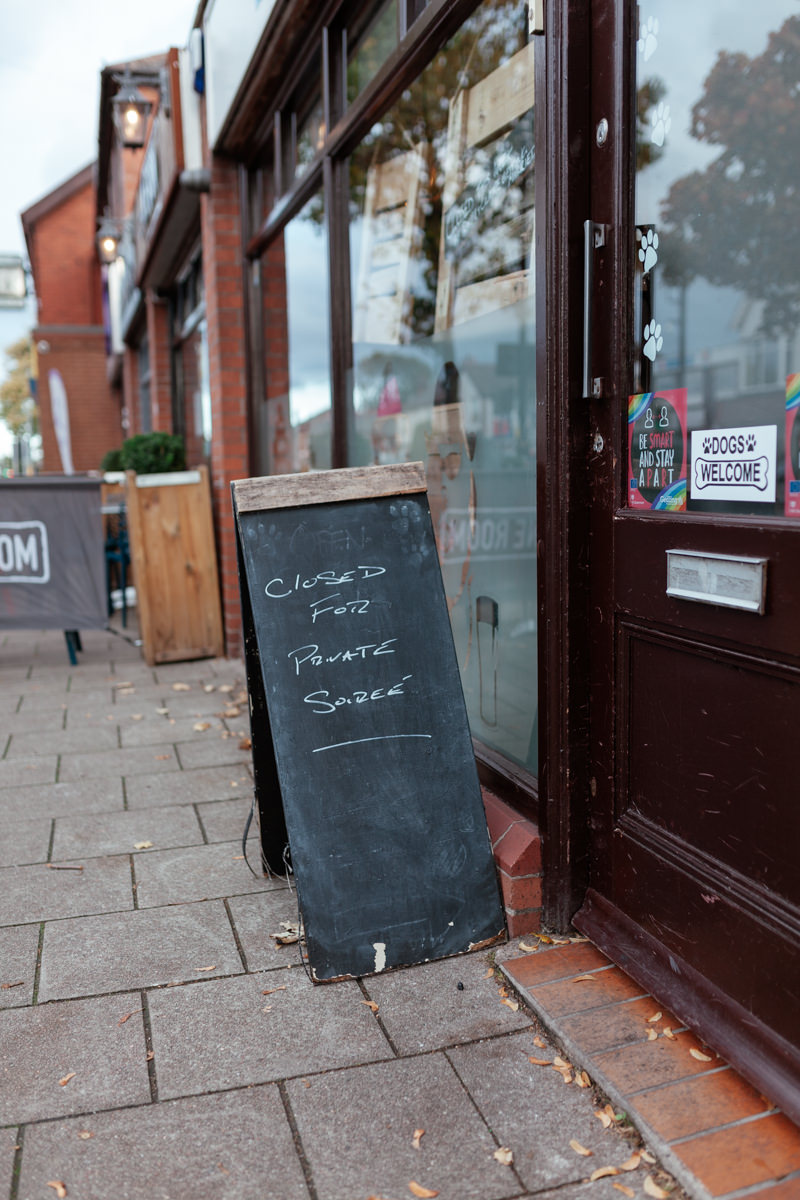 CLOSED
FOR
PRIVATE
SOIREÉ
BE SMART
AND STAY
APART
DOGS
WELCOME
OOM
NE ROOM